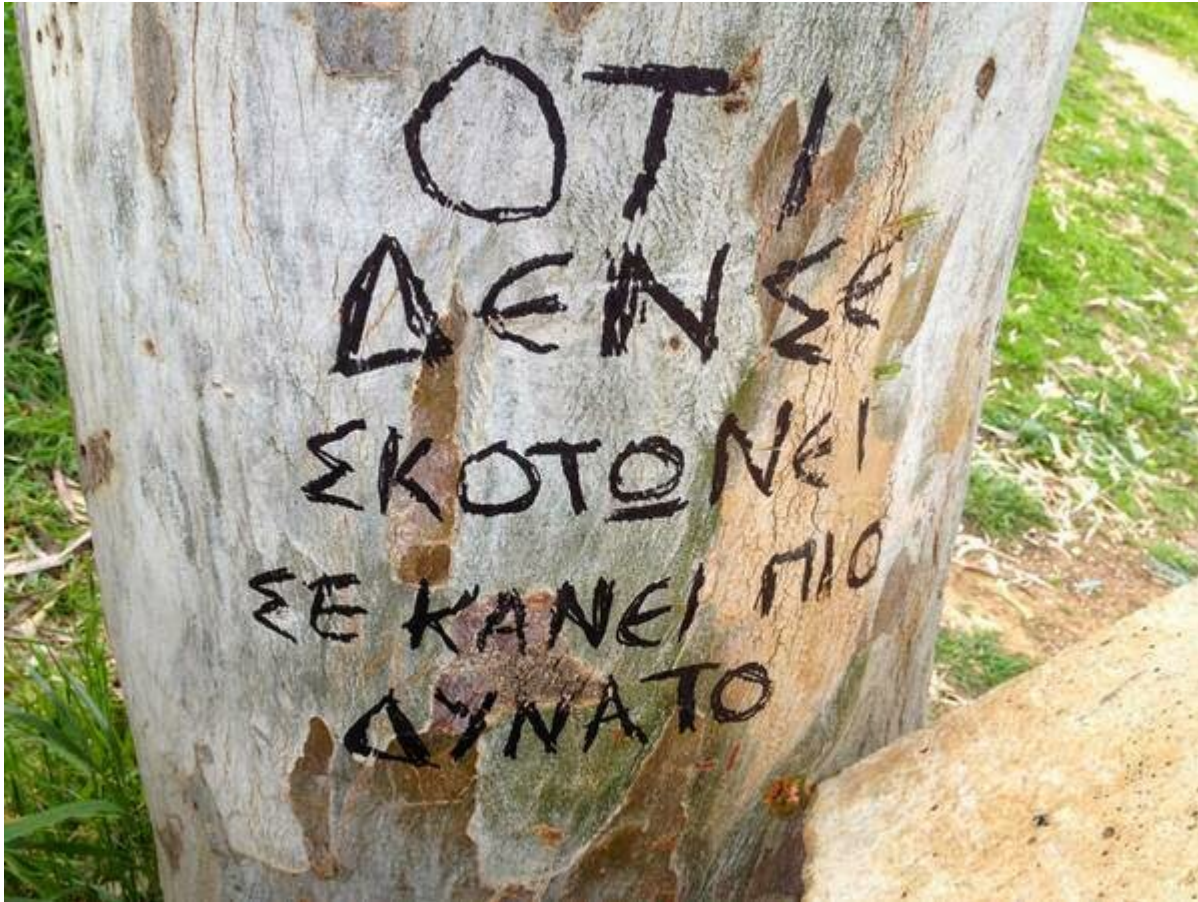 ΟΤΙ
ΔΕΝ ΣΕ
ΣΚΟΤΩΝΕΙ
ΣΕ ΚΑΝΕΙ ΠΙΟ
ΔΥΝΑΤΟ